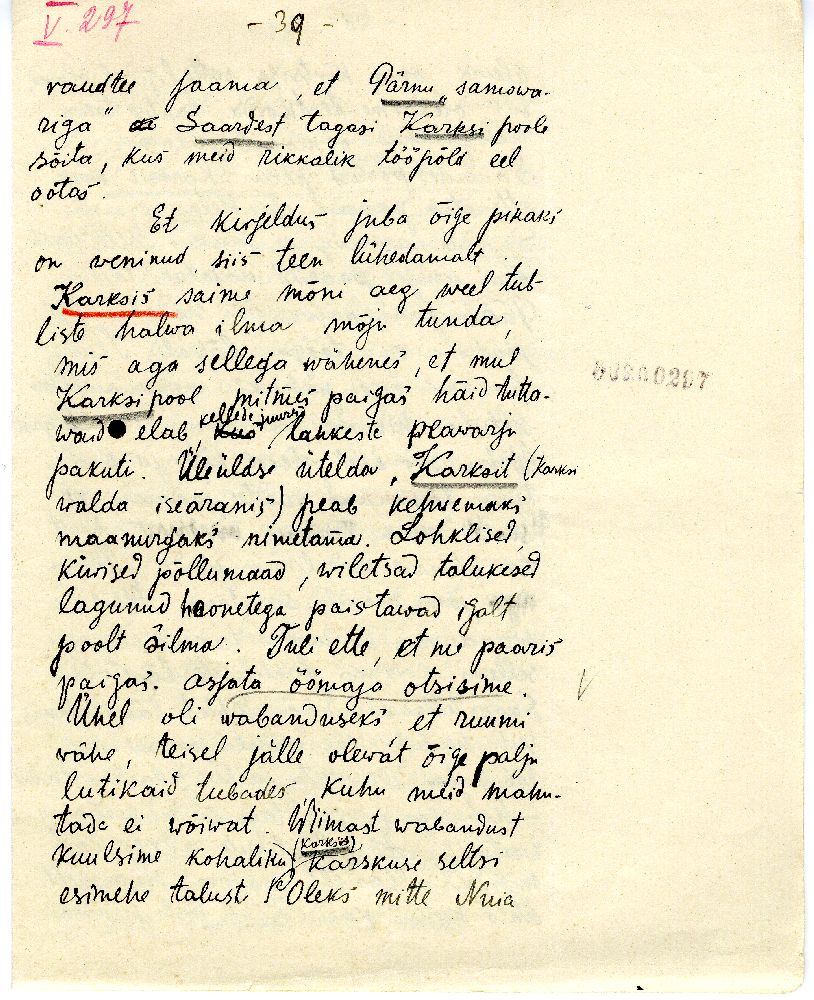 V. 297
- 39 -
raudtee jaama, et Pärnu „samowa-
riga" Saardest tagasi Karksi poole
sõita, kus meid rikkalik tööpõld eel
ootas.
Et kirjeldus juba õige pikaks
on weninud, siis teen lühedamalt.
Karksis saime mõni aeg weel tub-
liste halwa ilma mõju tunda,
mis aga sellega wähenes, et mul
Karksi pool mitmes paigas häid tutta-
waid elab, kellede juures lahkeste peawarju
pakuti. Üleüldse üteldा, Karksit (Karksi
walda iseäranis) peab kehwemaks
maanurgaks nimetama. Lohklised,
kiwised põllumaad, wiletsad talukesed
lagunud hoonetega paistawad igalt
poolt silma. Tuli ette, et me paaris
paigas asjata öömaja otsisime.
Ühel oli wabanduseks et ruumi
wähe, teisel jälle olewat õige palju
lutikaid tubades, kuhu meid mahu-
tada ei wõiwat. Wiimast wabandust
kuulsime kohaliku (Karksis) karskuse seltsi
esimehe talust. Oleks mitte Nuia